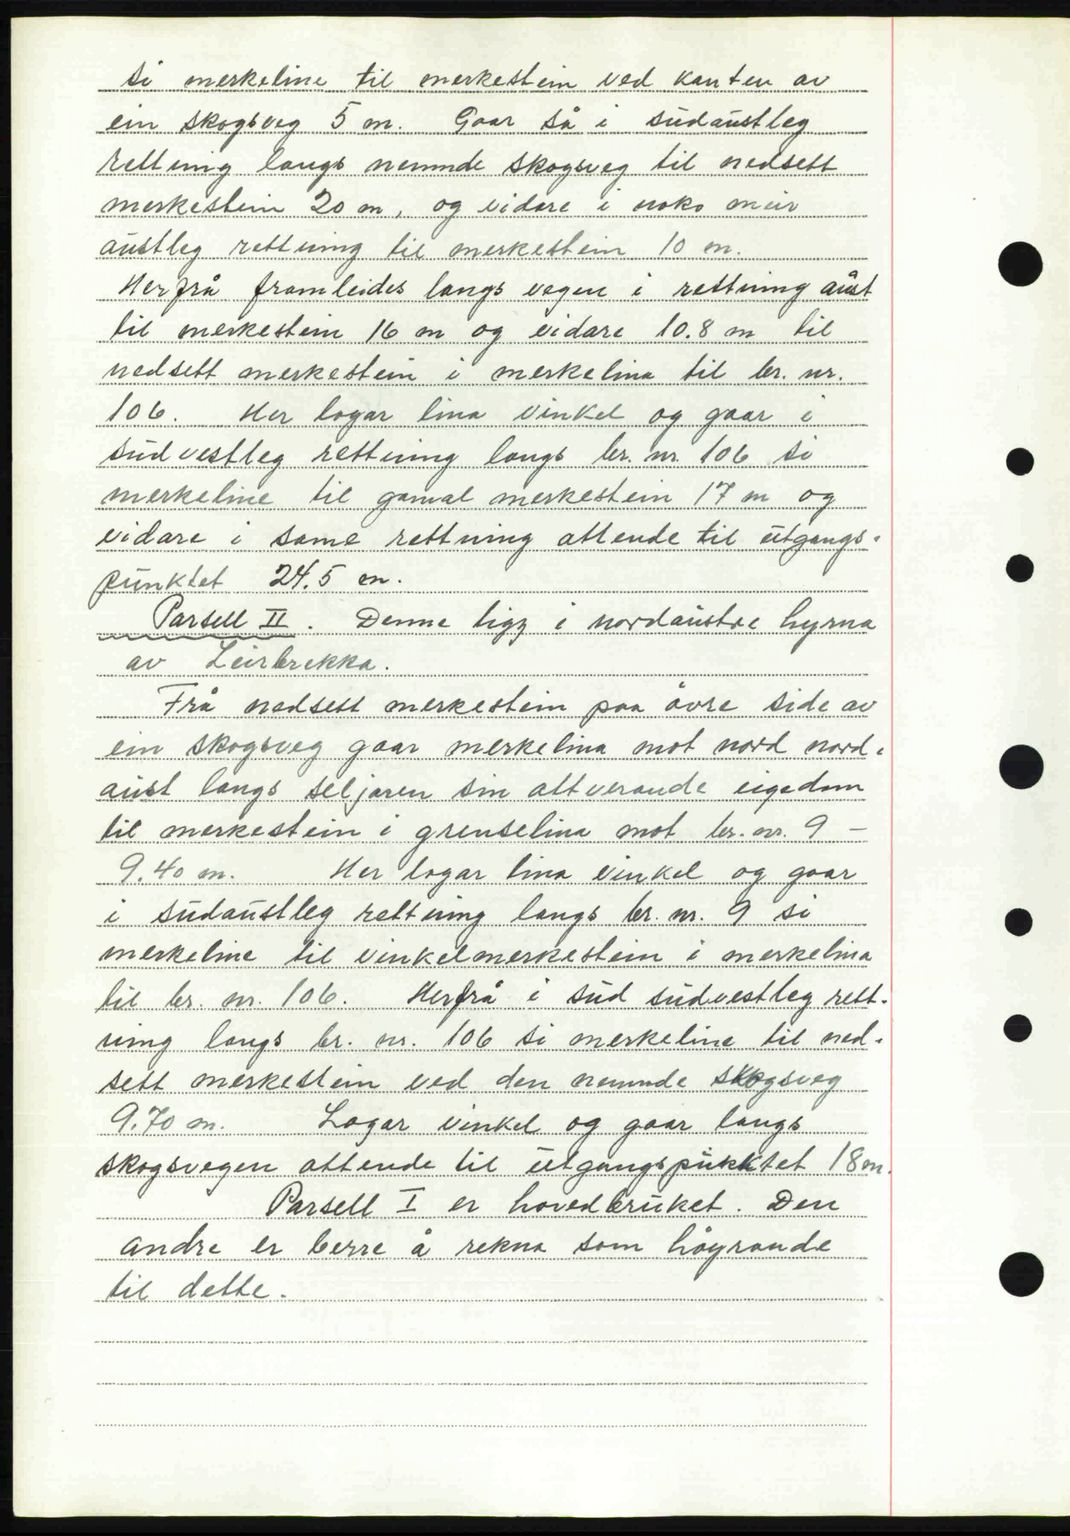 si merkeline til merkestein ved kanten av
ein skogsveg 5 m. Gaar så i sudaustleg
rettning langs nemnde skogsveg til nedsett
merkestein 20 m, og vidare i noko meir
austleg rettning til merkestein 10 m.
Herfrå framleides langs vegen i rettning aust
til merkestein 16 m og vidare 10.8 m til
nedsett merkestein i merkelina til br. nr.
106. Her lagar lina vinkel og gaar i
sudvestleg rettning langs br. nr. 106 si
merkeline til gamal merkestein 17 m og
vidare i same rettning attende til utgangs-
punktet 24.5 m.
Parsell II. Denne ligg i nordaustre hyrna
av Leirbrekka.
Frå nedsett merkestein paa övre side av
ein skogsveg gaar merkelina mot nord nord-
aust langs seljaren sin attverande eigedom
til merkestein i grenselina mot br. nr. 9 -
9.40 m. Her lagar lina vinkel og gaar
i sudaustleg rettning langs br. nr. 9 si
merkeline til vinkelmerkestein i merkelina
til br. nr. 106. Herfrå i sud sudvestleg rett-
ning langs br. nr. 106 si merkeline til ned-
sett merkestein ved den nemnde skogsveg
9.70 m. Lagar vinkel og gaar langs
skogsvegen attende til utgangspunktet 18 m.
Parsell I er hovedbruket. Den
andre er berre å rekna som höyrande
til dette.